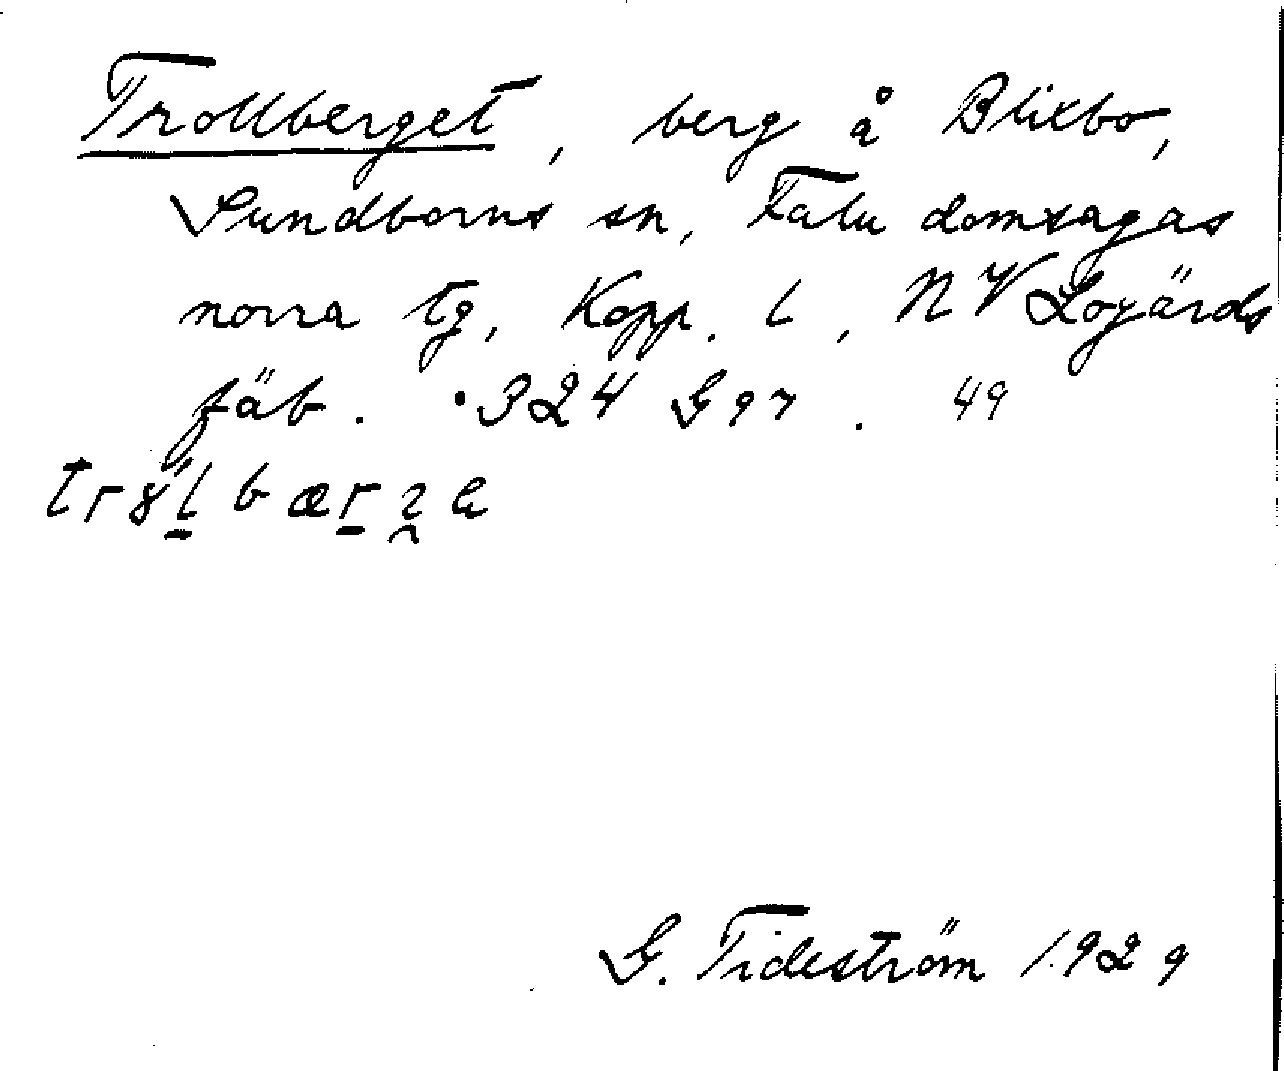 Trollberget, berg å Blixbo,
Sundborns sn, Falu domsagas
norra tg, Kopp. l, NV Logärds
fäb. · 324 G 97. 49
G. Tideström 1929